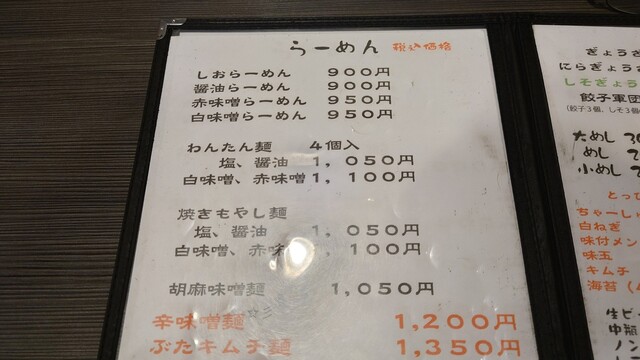 らーめん 税込価格
しおらーめん 900円
醤油らーめん 900円
赤味噌らーめん 950円
白味噌らーめん 950円
わんたん麺 4個入
塩、醤油 1,050円
白味噌、赤味噌 1,100円
焼きもやし麺
塩、醤油 1,050円
白味噌、赤味 100円
胡麻味噌麺 1,050円
辛味噌麺 1,200円
ぶたキムチ麺 1,350円
ぎょうざ
にらぎょう
しそぎょう
餃子軍団
(餃子3個、しそ3個
大めし
めし
小めし
とっ
ちゃーし
白ねぎ
味付メン
味玉
キムチ
海苔
生ビ
中龍
ノン